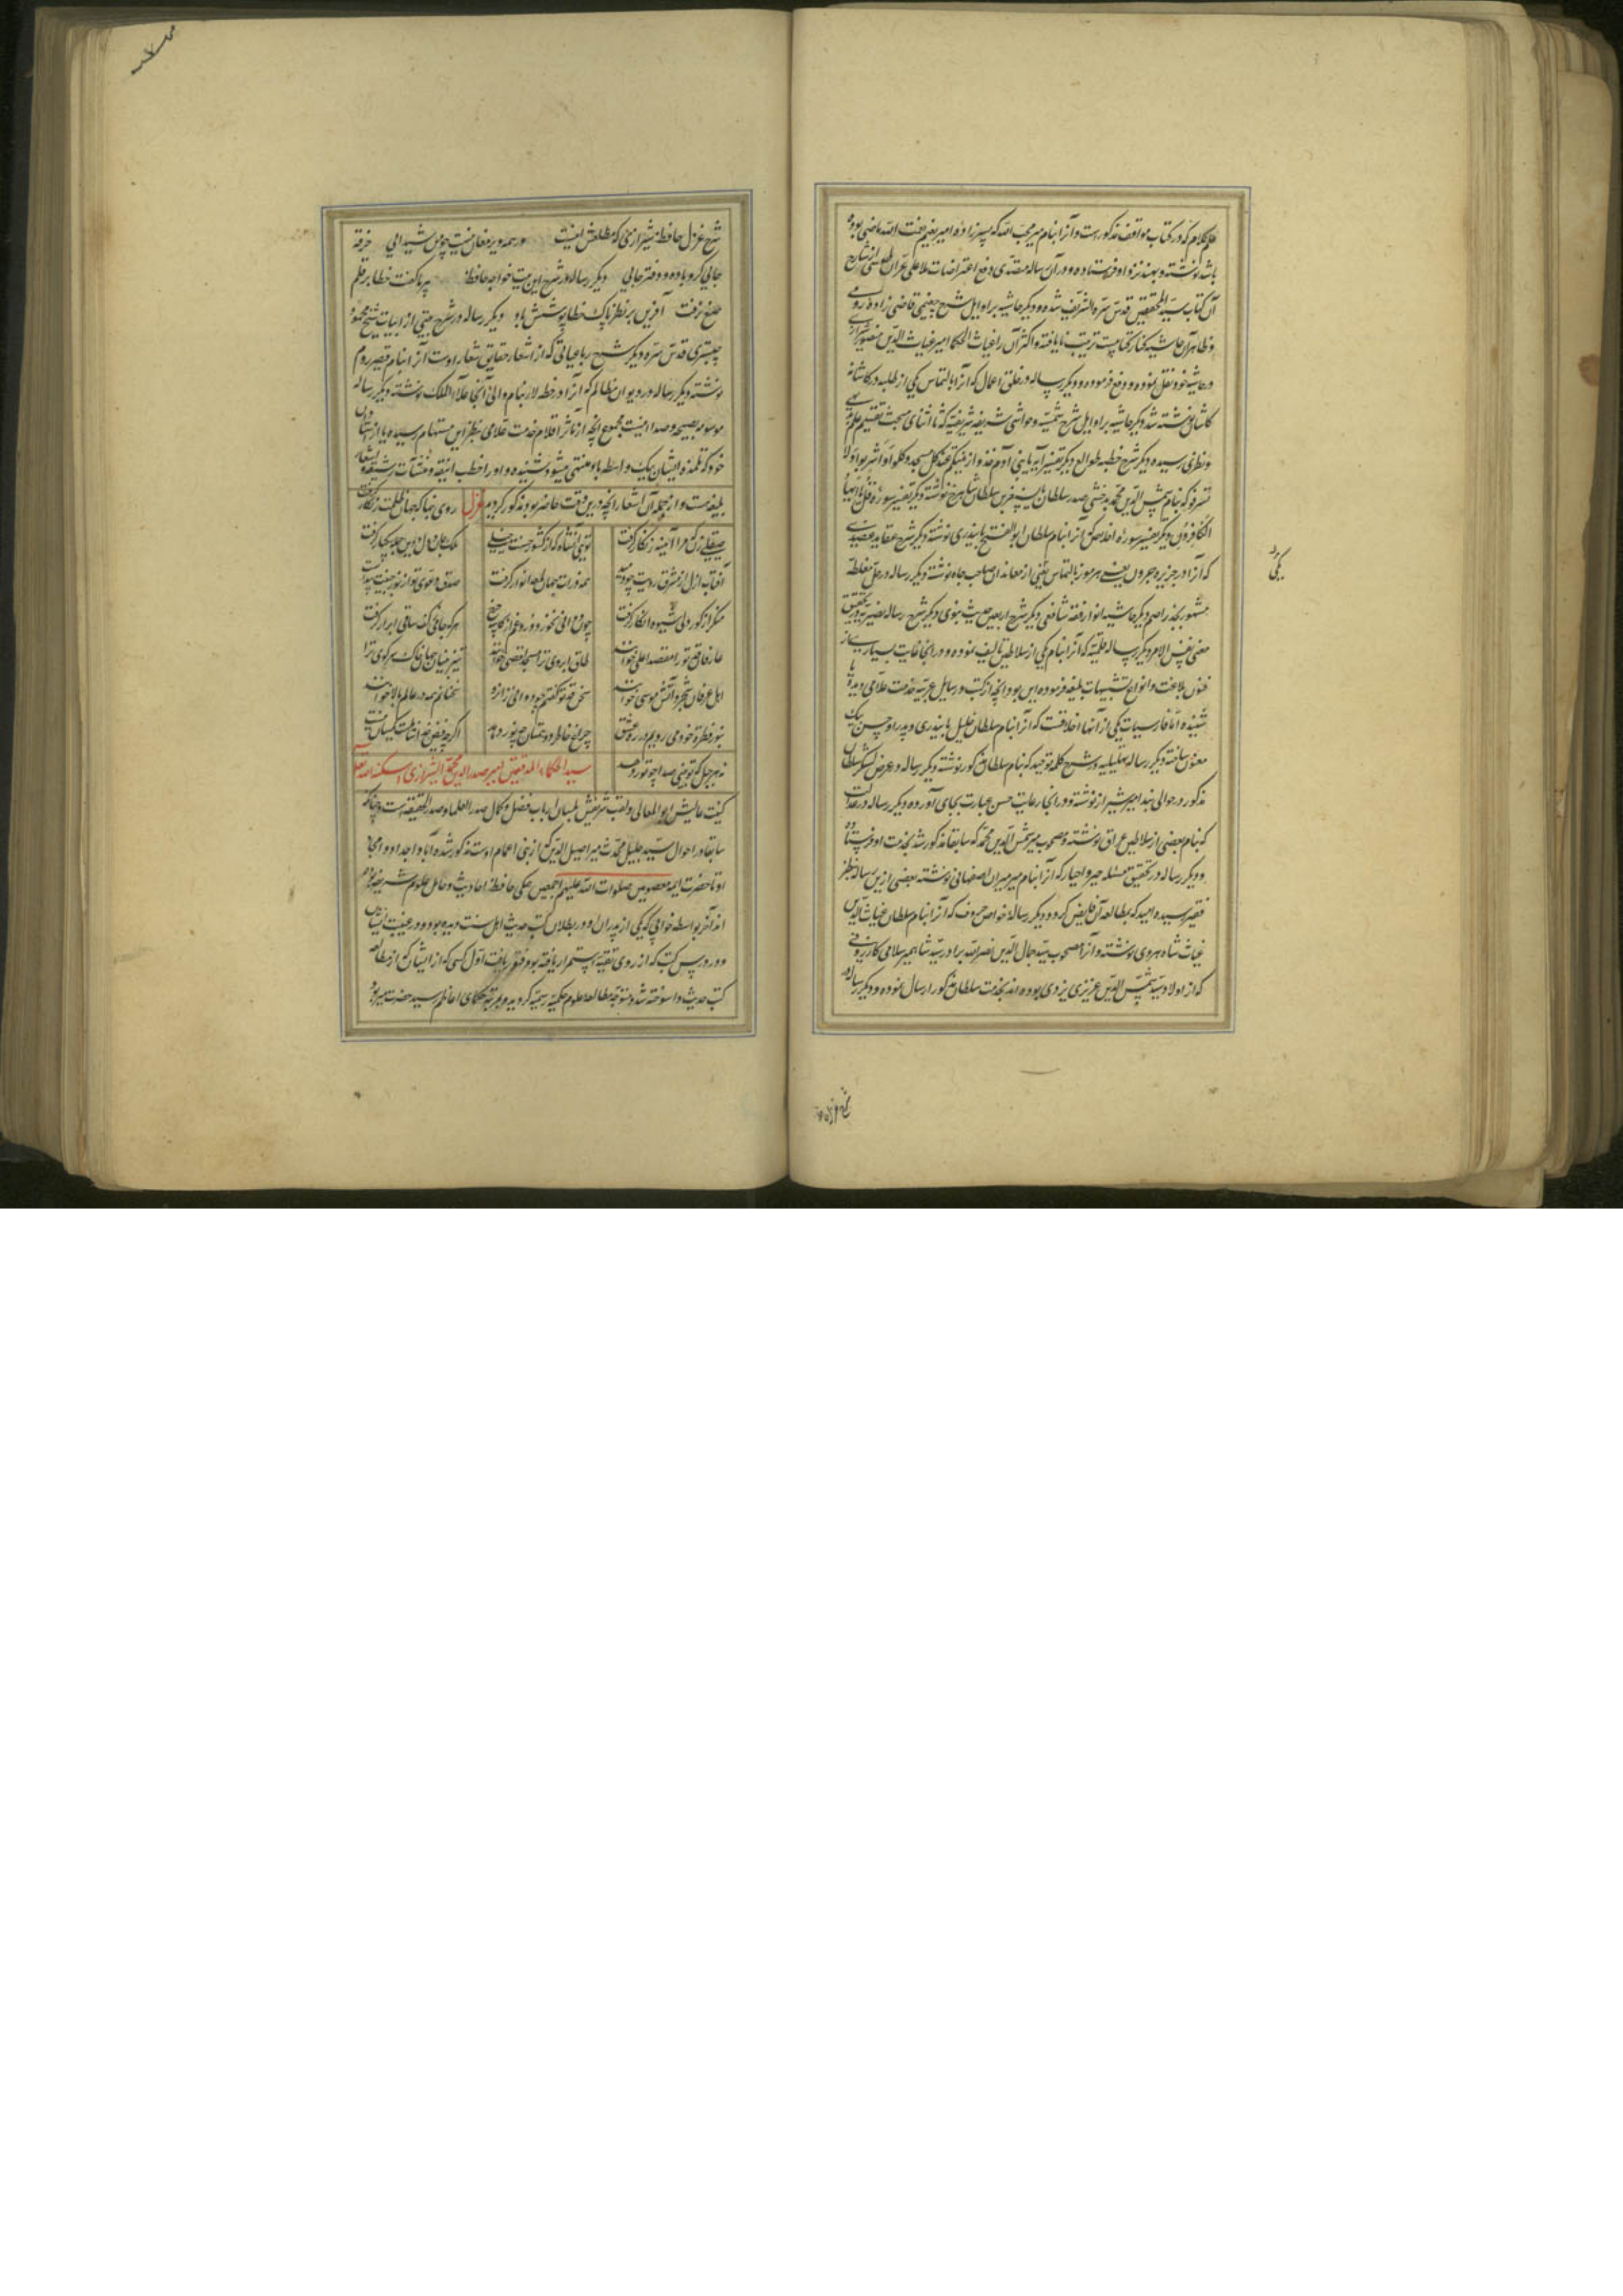 علم کلام که در کتاب مواقف مذکور است و آنرا بنام میر محب الله که پسرزاده امیر نعیم نعمت الله ماضی بوده
باشد نوشته و بهند نزد او فرستاده و در آن رساله متصدی دفع اعتراضات ملا علی عران طوسی از شارح
آن کتاب سید المحققین قدس سره الشریف شده و دیگر حاشیه بر اوایل شرح چغمینی قاضی زاده رومی
و ظاهرا آن حاشیه کنار کتابست ترتیب نایافته و اکثر آن را غیاث الحکما امیر غیاث الدین منصور شیرازی
در حاشیه خود نقل نموده و دفع فرموده و دیگر رساله در خلق اعمال که آنرا بالتماس یکی از طلبه در کاشانه
کاشان نوشته شد دیگر حاشیه بر اوایل شرح شمسیه و حواشی شریفه شریفیه که تا اثنای مبحث تقسیم علم ببدیهی
و نظری رسیده دیگر شرح خطبه طوالع دیگر تفسیر آیه یا بنی آدم خذوا زینتکم عند کل مسجد و کلوا و اشربوا و لا
تسرفوا که بنام شمس الدین محمد بدخشی صدر سلطان بایسنغر بن سلطان شاهرخ نوشته دیگر تفسیر سوره قل یا ایها
الکافرون دیگر تفسیر سوره اخلاص که آنرا بنام سلطان ابو الفتح بایندری نوشته دیگر شرح عقاید عضدی
که آنرا در جزیره جرون یعنی هرموز بالتماس یکی از معاندان صاحب جاه نوشته دیگر رساله در حل مغلطه
مشهور بجذر اصم دیگر حاشیه انوار فقه شافعی دیگر شرح اربعین حدیث نبوی دیگر شرح رساله نصیریه در تحقیق
معنی نفس الامر دیگر رساله قلمیه که آنرا بنام یکی از سلاطین تالیف نموده و در انجا غایت بسیار از
فنون بلاغت و انواع تشبیهات بلیغه فرموده این بود انچه از کتب و رسایل عربیه خدمت علامی دیده یا
شنیده اما فارسیات یکی از آنها اخلاقست که آنرا بنام سلطان خلیل بایندری و پدر او حسن بیک
معنون ساخته دیگر رساله تهلیلیه در شرح کلمه توحید که بنام سلطان مذکور نوشته دیگر رساله در عرض لشکر سلطان
مذکور در حوالی بند امیر شیراز نوشته و در انجا رعایت حسن عبارت بجای آورده دیگر رساله در عدالت
که بنام بعضی از سلاطین عراق نوشته و مصحوب میر شمس الدین محمد که سابقا مذکور شد بخدمت او فرستاده
و دیگر رساله در تحقیق مسئله جبر و اختیار که آنرا بنام میر میران اصفهانی نوشته بعضی ازین رساله بنظر
فقیر رسیده امید که بمطالعه آن فایض گردد و دیگر رساله خواص حروف که آنرا بنام سلطان غیاث الدین
غیاث شاه هروی نوشته و آنرا مصحوب سید جمال الدین نصر الله برادر سید شاهمیر سلامی کازرونی
که از اولاد سید شمس الدین عزیزی یزدی بوده اند بخدمت سلطان مذکور ارسال نموده و دیگر رساله در
یکی
شرح غزل
شرح غزل حافظ شیرازی که مطلعش اینست در همه دیر مغان نیست چو من شیدایی خرقه
جایی گرو باده و دفتر جایی دیگر رساله در شرح این بیت خواجه حافظ پیر ما گفت خطا بر قلم
صنع نرفت آفرین بر نظر پاک خطاپوشش باد دیگر رساله در شرح بیتی از ابیات شیخ محمود
چبستری قدس سره دیگر شرح رباعیاتی که از اشعار حقایق شعار اوست آنرا بنام قیصر روم
نوشته دیگر رساله در دیوان مظالم که آنرا در خطه لار بنام والی آنجا علاء الملک نوشته دیگر رساله
موسومه بصیحه و صدا اینست مجموع انچه از مآثر اقلام خدمت علامی بنظر این مستهام رسیده یا از استادان
خود که تلمذ ایشان بیک واسطه باو منتهی میشود شنیده و او را خطب انیقه و منشآت رشیقه و اشعار
بلیغه هست و از جمله آن اشعار انچه درین وقت حاضر بود مذکور گردید غزل روی بنما که جهان ظلمت زنگار گرفت
صیقلی زن که مرا آینه زنگار گرفت تویی آن شاه که از کشور حسنت خیلی ملک جان و دل و دین جمله بیکبار گرفت
آفتاب ازل از مشرق رویت چو دمید همه ذرات جهان لمعه انوار گرفت صدق دعوی تو از نور جبینت پیداست
منکر از کور دلی شیوه انکار گرفت چون دوانی نخورد دوره غم از گاه چرخ هر که جامی ز کف ساقی ابرار گرفت
عارفا قد تو را مقصد اعلی خوانند طاق ابروی ترا مسجد اقصی خوانند تیزبینان جهان خاک سر کوی ترا
اهل عرفان شجر و آتش موسی خوانند سخن قد تو گفتم چو دوانی زانرو سخنانم همه در عالم بالا خوانند
بنور فطره خود می رویم در ره عشق چراغ خاطر دون همتان چو نور دهد اگرچه فیض نخ انبات یکسانست
نه هر جبل که تو بینی صدا چو طور دهد سید الحکماء المدققین امیر صدر الدین محمد الشیرازی اسکنه الله تعالی
کنیت عالیش ابو المعالی و لقب شریفش بلسان ارباب فضل و کمال صدر العلما و صدر الحقیقه است و چنانکه
سابقا در احوال سید جلیل محدث میر اصیل الدین که از بنی اعمام اوست مذکور شده آبا و اجداد او انجا
او تا حضرت ایمه معصومین صلوات الله علیهم اجمعین همگی حافظ احادیث و حامل علوم شریفه بوده
اند آخر بواسطه خوابی که یکی از پدران او در بطلان کتب حدیث اهل سنت دیده بوده و رغبت ایشان
در درس کتب که از روی تقیه استمرار یافته بود فتور یافت اول کسی که از ایشان که از مطالعه
کتب حدیث وا سوخته شد و متوجه مطالعه علوم حکمیه رسمیه گردید و بمرتبه حکمای اعاظم رسید حضرت میر بود